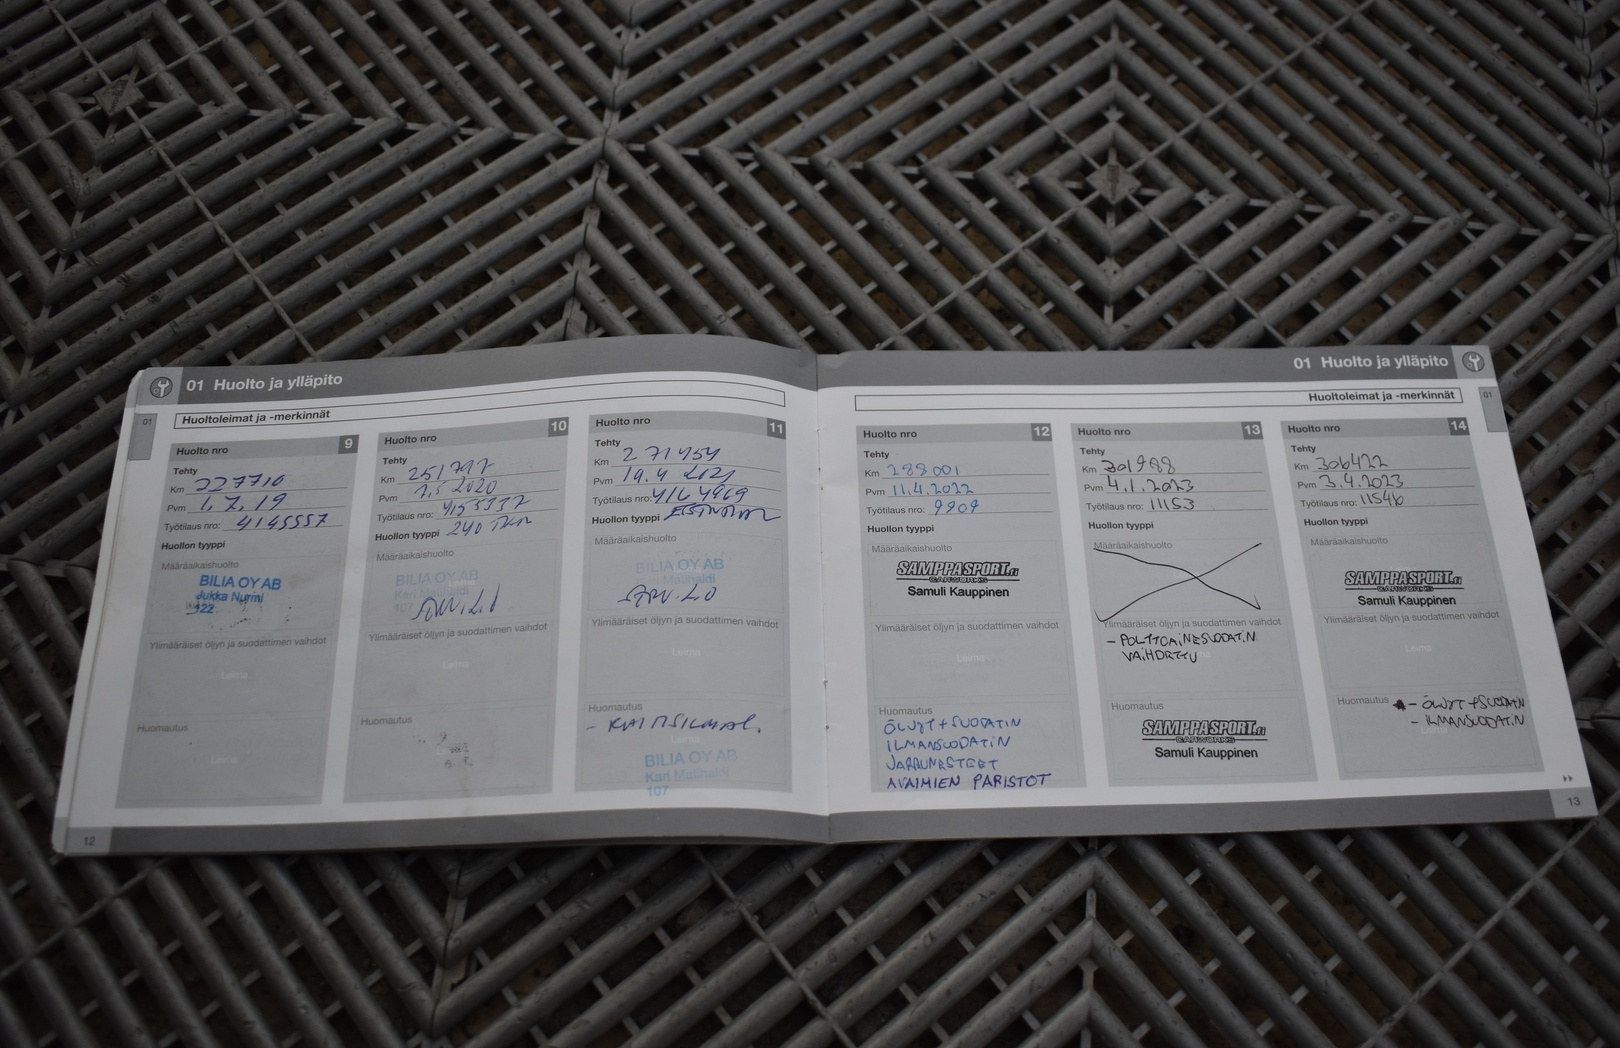 01 Huolto ja ylläpito
01
Huoltoleimat ja -merkinnät
Huolto nro 9
Tehty
Km 227710
Pvm 1.7.19
Työtilaus nro: 4145557
Huollon tyyppi
Määräaikaishuolto
BILIA OY AB
Jukka Nurmi
122
Ylimääräiset öljyn ja suodattimen vaihdot
Leima
Huomautus
Leima
Huolto nro 10
Tehty
Km 251797
Pvm 2020
Työtilaus nro:
Huollon tyyppi 240 TKM
Määräaikaishuolto
BILIA OY AB
Kari Matihaldi
107
Ylimääräiset öljyn ja suodattimen vaihdot
Leima
Huomautus
Huolto nro 11
Tehty
Km 271454
Pvm 19.4 2021
Työtilaus nro: 4164969
Huollon tyyppi
Määräaikaishuolto
BILIA OY AB
Kari Matihaldi
Ylimääräiset öljyn ja suodattimen vaihdot
Leima
Huomautus
Leima
BILIA OY AB
Kari Matihaldi
107
12
01 Huolto ja ylläpito
01
Huoltoleimat ja -merkinnät
Huolto nro 12
Tehty
Km 288001
Pvm 11.4.2022
Työtilaus nro: 9909
Huollon tyyppi
Määräaikaishuolto
SAMPPASPORT.fi
CARWORKS
Samuli Kauppinen
Ylimääräiset öljyn ja suodattimen vaihdot
Leima
Huomautus
ÖLJYT + SUODATIN
ILMANSUODATIN
JARRUNESTEET
AVAIMIEN PARISTOT
Huolto nro 13
Tehty
Km 301988
Pvm 4.1.2023
Työtilaus nro: 11153
Huollon tyyppi
Määräaikaishuolto
Ylimääräiset öljyn ja suodattimen vaihdot
- POLTTOAINESUODATIN
VAIHDETTU
Huomautus
SAMPPASPORT.fi
CARWORKS
Samuli Kauppinen
Huolto nro 14
Tehty
Km 306422
Pvm 3.4.2023
Työtilaus nro: 11546
Huollon tyyppi
Määräaikaishuolto
SAMPPASPORT.fi
CARWORKS
Samuli Kauppinen
Ylimääräiset öljyn ja suodattimen vaihdot
Leima
Huomautus - ÖLJYT + SUODATIN
- ILMANSUODATIN
Leima
13